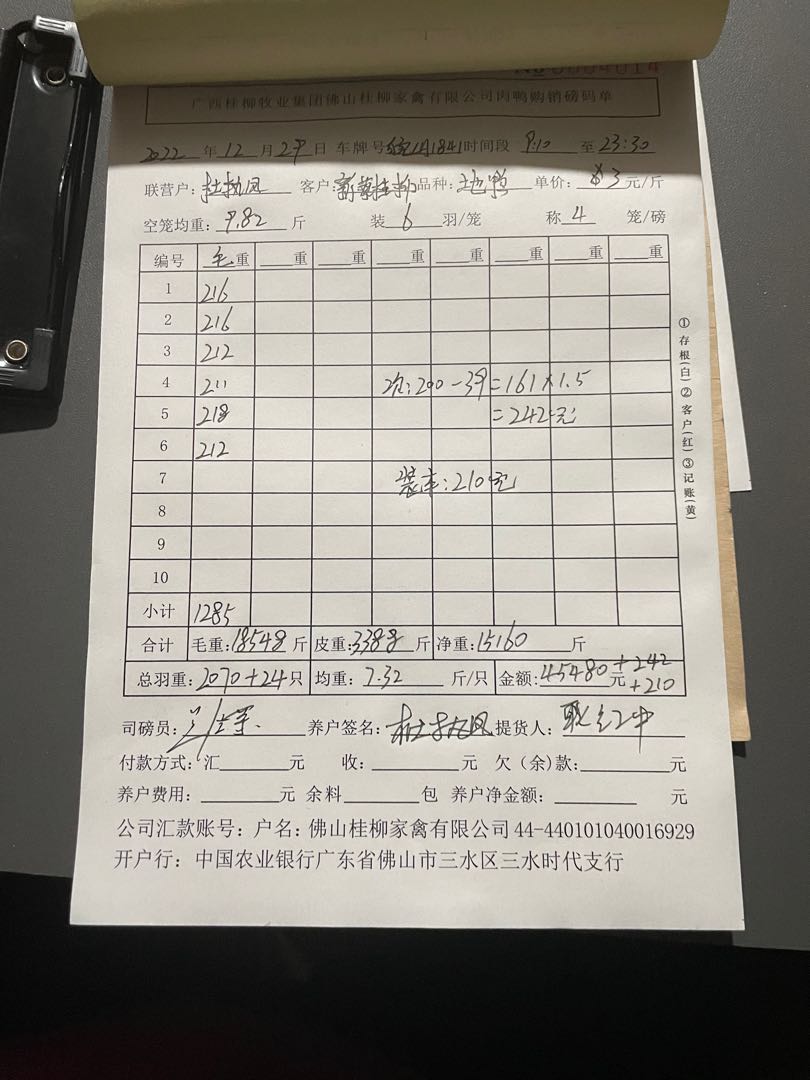 No 0004014
广西桂柳牧业集团佛山桂柳家禽有限公司肉鸭购销磅码单
2022 年 12 月 29 日 车牌号 时间段 9:10 至 23:30
联营户: 客户: 新蔡桂柳 品种: 土鸭 单价: 3 元/斤
空笼均重: 9.82 斤 装 6 羽/笼 称 4 笼/磅
编号 毛重 重 重 重 重 重 重 重
1 216
2 216
3 212
4 211 次: 200-39=161×1.5
5 218 =242元
6 212
7 装车:210元
8
9
10
小计 1285
合计 毛重: 18548 斤 皮重: 3388 斤 净重: 15160 斤
总羽重: 2070+24 只 均重: 7.32 斤/只 金额: 45480 元 +242
+210
司磅员: 养户签名: 提货人:
付款方式: 汇 元 收: 元 欠(余)款: 元
养户费用: 元 余料 包 养户净金额: 元
公司汇款账号: 户名: 佛山桂柳家禽有限公司 44-440101040016929
开户行: 中国农业银行广东省佛山市三水区三水时代支行
①存根(白)②客户(红)③记账(黄)